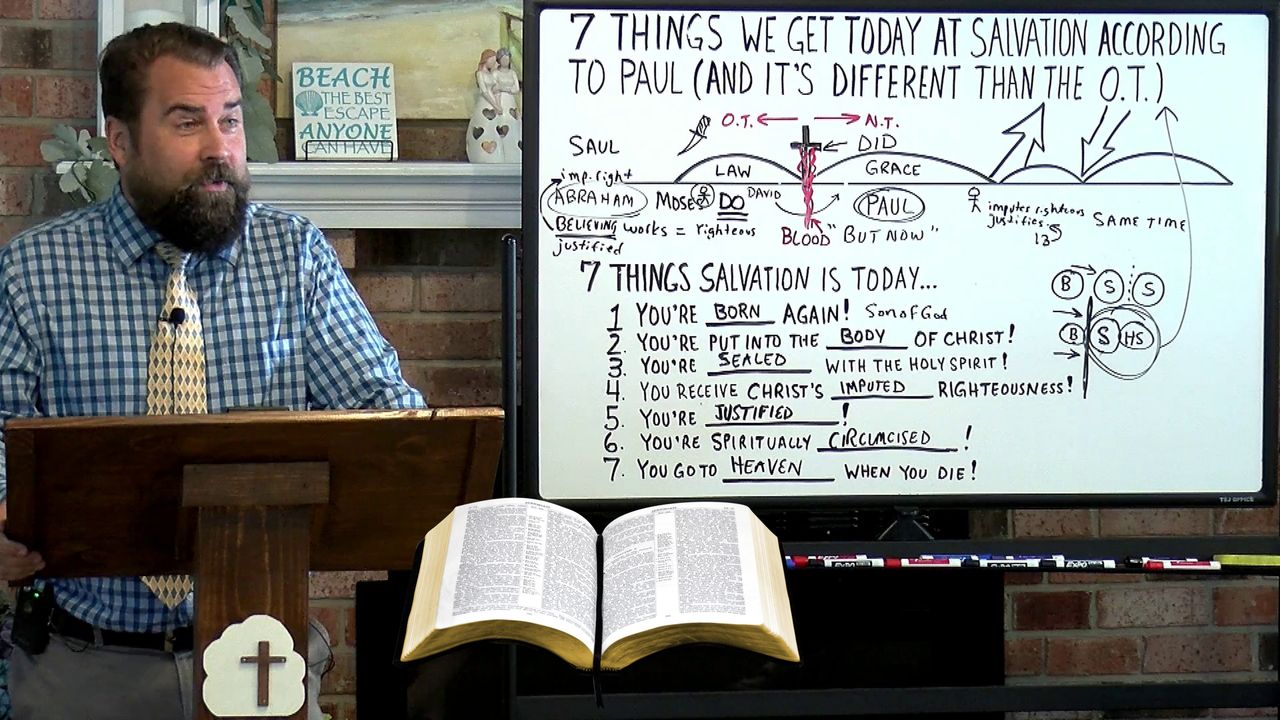 BEACH
THE BEST
ESCAPE
ANYONE
CAN HAVE
7 THINGS WE GET TODAY AT SALVATION ACCORDING
TO PAUL (AND IT'S DIFFERENT THAN THE O.T.)
O.T. N.T.
SAUL
DID
LAW
GRACE
imp. right
ABRAHAM MOSES DO DAVID
PAUL
BELIEVING works = righteous
justified
BLOOD "BUT NOW"
imputes righteous
justifies
13
SAME TIME
7 THINGS SALVATION IS TODAY...
1 YOU'RE BORN AGAIN! Son of God
2. YOU'RE PUT INTO THE BODY OF CHRIST!
3. YOU'RE SEALED WITH THE HOLY SPIRIT!
4. YOU RECEIVE CHRIST'S IMPUTED RIGHTEOUSNESS!
5. YOU'RE JUSTIFIED!
6. YOU'RE SPIRITUALLY CIRCUMCISED!
7. YOU GO TO HEAVEN WHEN YOU DIE!
B S S
B S HS
TSJ OFFICE
EXPO